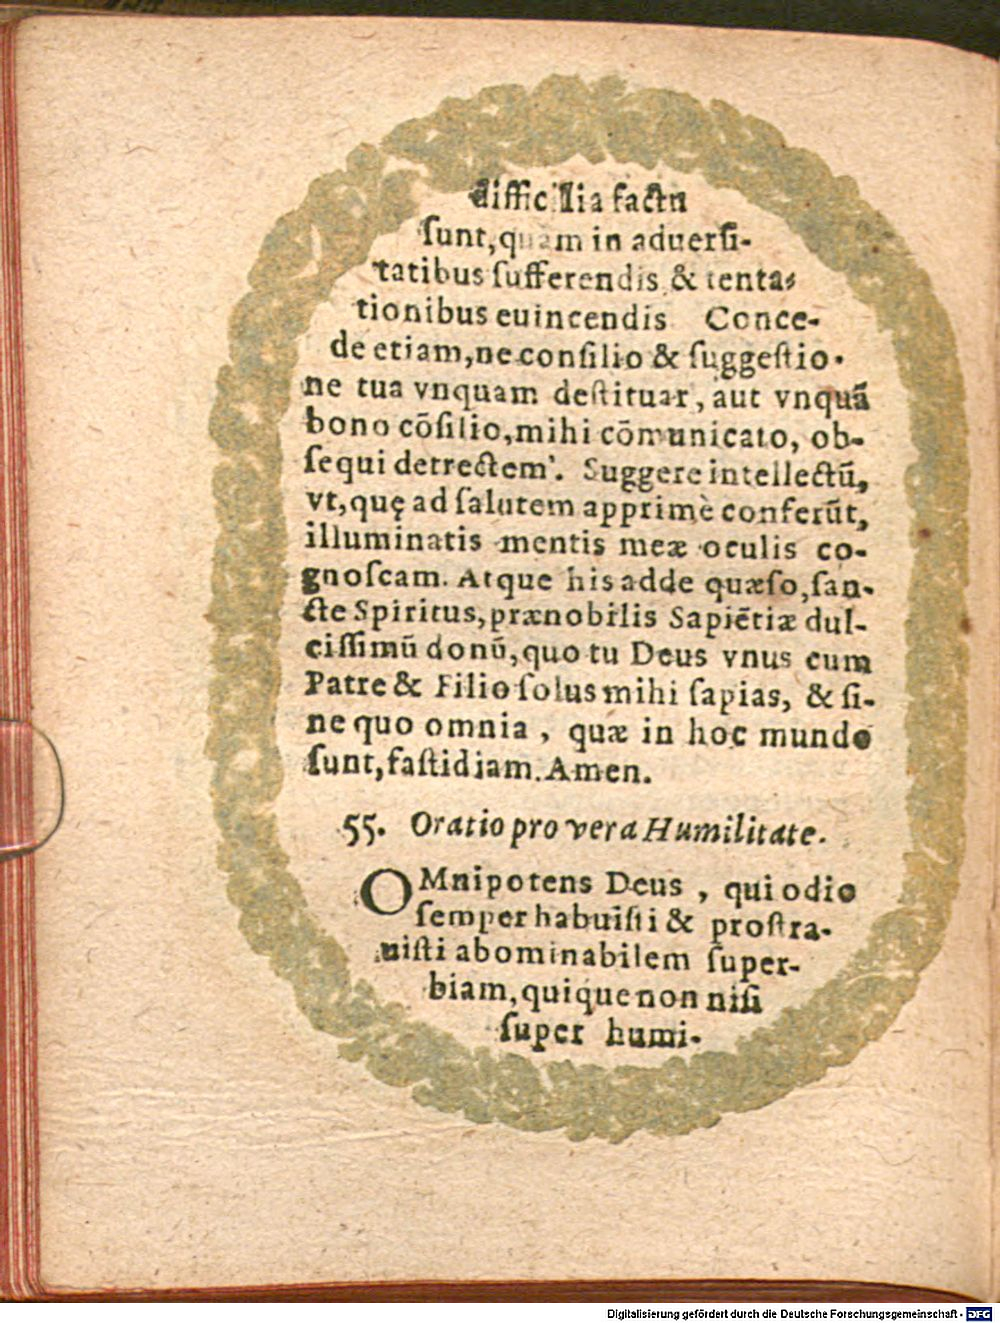 difficilia factu
ſunt, quàm in aduerſi-
tatibus ſufferendis & tenta-
tionibus euincendis Conce-
de etiam, ne conſilio & ſuggeſtio-
ne tua vnquam deſtituar, aut vnquã
bono cõſilio, mihi cõmunicato, ob-
ſequi detrectem'. Suggere intellectũ,
vt, quę ad ſalutem apprimè conferũt,
illuminatis mentis meæ oculis co-
gnoſcam. Atque his adde quæſo, ſan-
cte Spiritus, prænobilis Sapiẽtiæ dul-
ciſſimũ donũ, quo tu Deus vnus cum
Patre & Filio ſolus mihi ſapias, & ſi-
ne quo omnia, quæ in hoc mundo
ſunt, faſtidiam. Amen.
55. Oratio pro vera Humilitate.
OMnipotens Deus, qui odio
ſemper habuiſti & proſtra-
uiſti abominabilem ſuper-
biam, quique non niſi
ſuper humi-
Digitalisierung gefördert durch die Deutsche Forschungsgemeinschaft - DFG